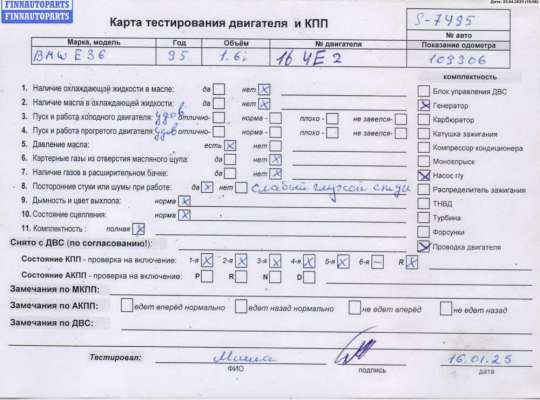 FINNAUTOPARTS
FINNAUTOPARTS
Дата: 22.04.2025
Карта тестирования двигателя и КПП
S-7495
№ авто
Марка, модель Год Объём № двигателя Показание одометра
BMW E36 95 1.6i 16 4E2 109306
комплектность
1. Наличие охлаждающей жидкости в масле: да нет X
2. Наличие масла в охлаждающей жидкости: да нет X
3. Пуск и работа холодного двигателя: удов отлично- норма - плохо - не завелся-
4. Пуск и работа прогретого двигателя: удов отлично- норма - плохо - не завелся-
5. Давление масла: есть X нет
6. Картерные газы из отверстия масляного щупа: да нет X
7. Наличие газов в расширительном бачке: да нет X
8. Посторонние стуки или шумы при работе: да X нет слабый глухой стук
9. Дымность и цвет выхлопа: норма X
10. Состояние сцепления: норма X
11. Комплектность : полная X
Блок управления ДВС
X Генератор
Карбюратор
Катушка зажигания
Компрессор кондиционера
Моновпрыск
X Насос г/у
Распределитель зажигания
ТНВД
Турбина
Форсунки
X Проводка двигателя
Снято с ДВС (по согласованию!):
Состояние КПП - проверка на включение: 1-я X 2-я X 3-я X 4-я X 5-я X 6-я — R X
Состояние АКПП - проверка на включение: P R N D
Замечания по МКПП:
Замечания по АКПП: едет вперёд нормально едет назад нормально не едет вперёд не едет назад
Замечания по ДВС:
Тестировал: Миша 16.01.25
ФИО подпись дата